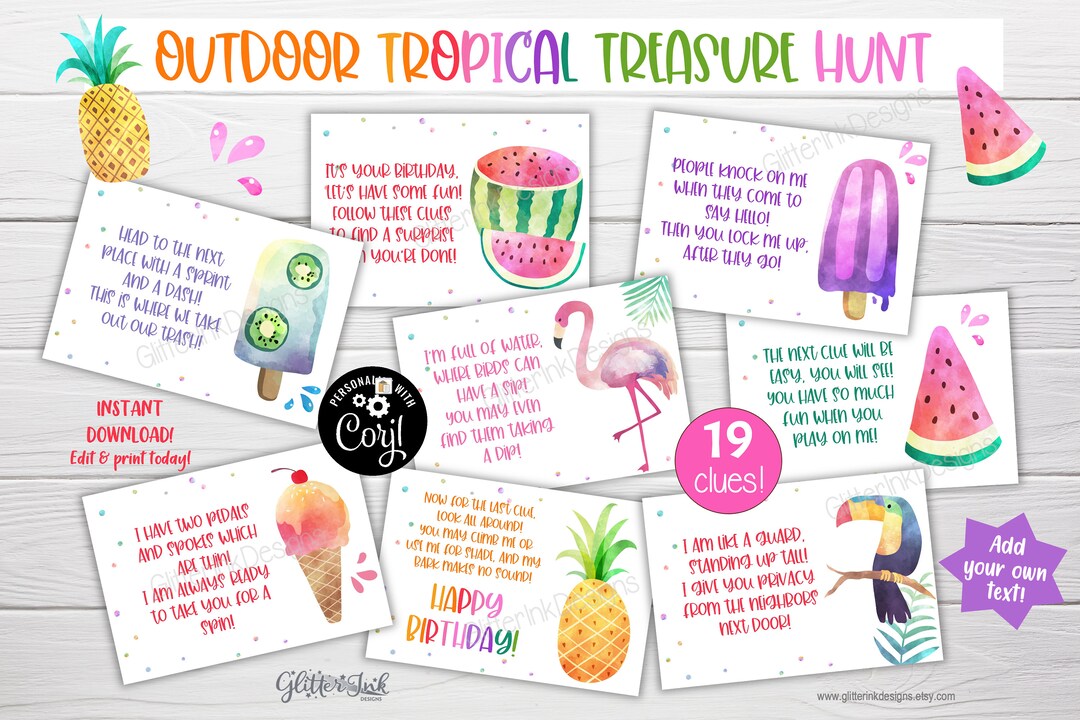 OUTDOOR TROPICAL TREASURE HUNT
IT'S YOUR BIRTHDAY,
LET'S HAVE SOME FUN!
FOLLOW THESE CLUES
TO FIND A SURPRISE
YOU'RE DONE!
PEOPLE KNOCK ON ME
WHEN THEY COME TO
SAY HELLO!
THEN YOU LOCK ME UP,
AFTER THEY GO!
HEAD TO THE NEXT
PLACE WITH A SPRINT
AND A DASH!
THIS IS WHERE WE TAKE
OUT OUR TRASH!
I'M FULL OF WATER,
WHERE BIRDS CAN
HAVE A SIP!
YOU MAY EVEN
FIND THEM TAKING
A DIP!
THE NEXT CLUE WILL BE
EASY, YOU WILL SEE!
YOU HAVE SO MUCH
FUN WHEN YOU
PLAY ON ME!
INSTANT
DOWNLOAD!
Edit & print today!
PERSONALIZE WITH
Corjl
19
clues!
I HAVE TWO PEDALS
AND SPOKES WHICH
ARE THIN!
I AM ALWAYS READY
TO TAKE YOU FOR A
SPIN!
NOW FOR THE LAST CLUE,
LOOK ALL AROUND!
YOU MAY CLIMB ME OR
USE ME FOR SHADE, AND MY
BARK MAKES NO SOUND!
HAPPY
BIRTHDAY!
I AM LIKE A GUARD,
STANDING UP TALL!
I GIVE YOU PRIVACY
FROM THE NEIGHBORS
NEXT DOOR!
Add
your own
text!
GlitterInk
DESIGNS
www.glitterinkdesigns.etsy.com
GlitterInkDesigns